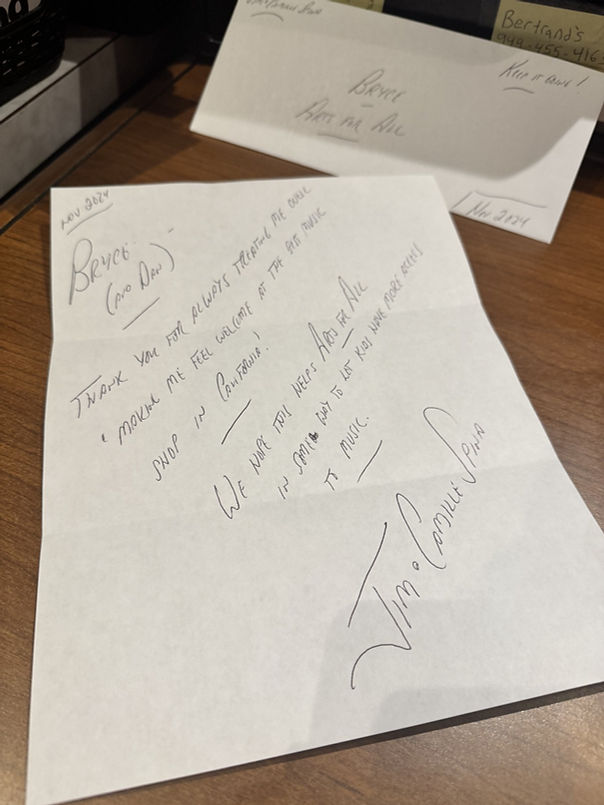 Bertrand's
949-455-416
KEEP IT GOING!
BRYCE
ARTS FOR ALL
NOV 2024
NOV 2024
BRYCE
(AND DAN)
THANK YOU FOR ALWAYS TREATING ME WELL
& MAKING ME FEEL WELCOME AT THE BEST MUSIC
SHOP IN CALIFORNIA!
WE HOPE THIS HELPS ARTS FOR ALL
IN SOME WAY TO LET KIDS HAVE MORE ACCESS
TO MUSIC.
JIM & CAMILLE